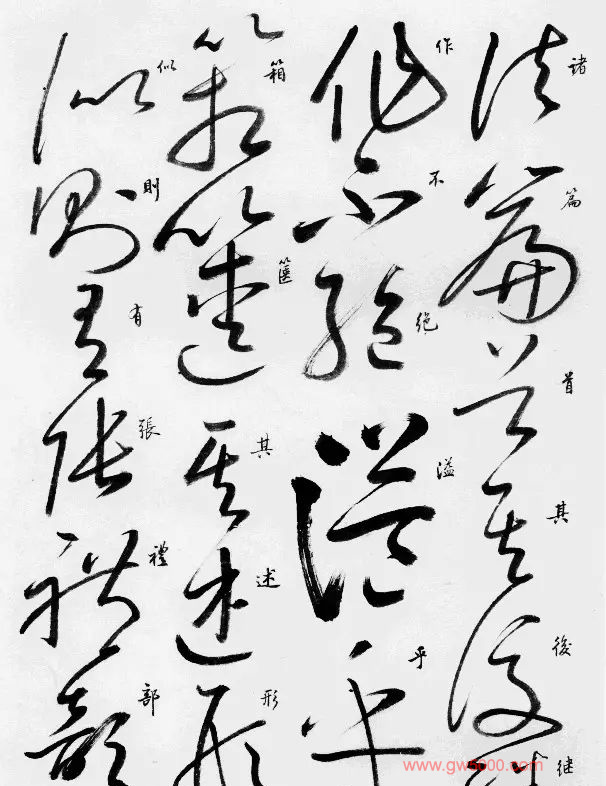 諸篇首其後继
作不绝溢乎
箱篋其述形
似則有張禮部
www.gw5000.com